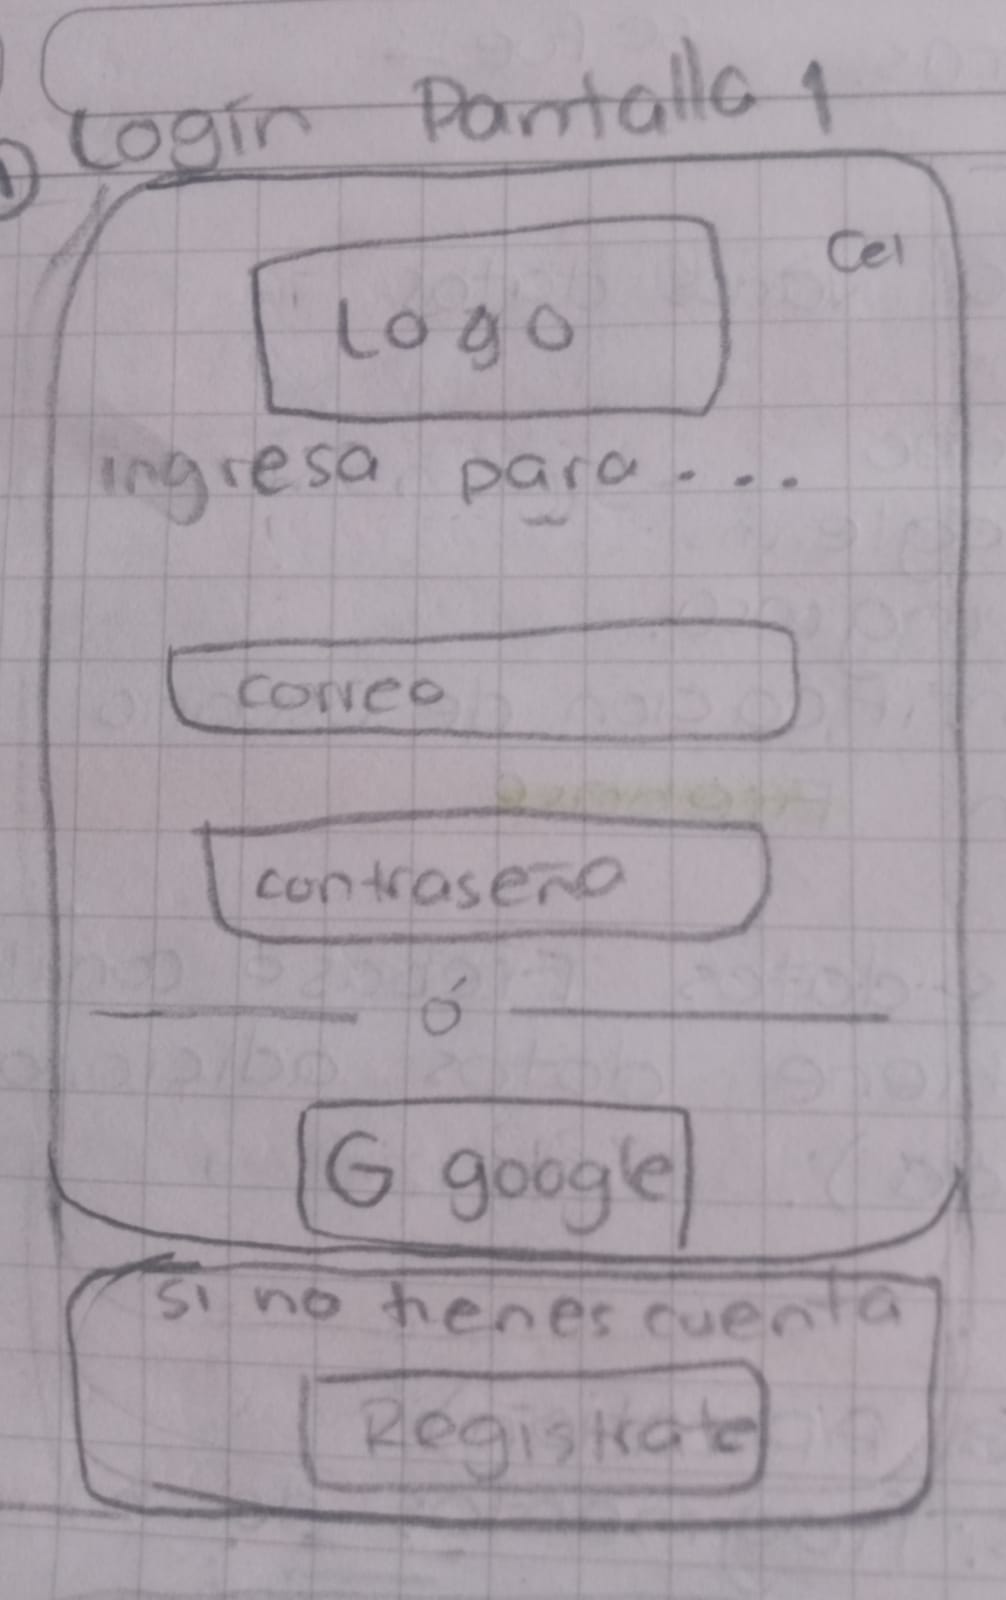 Login Pantalla 1
1
Cel
Logo
ingresa para....
correo
contraseña
ó
G google
si no tienes cuenta
Registrate